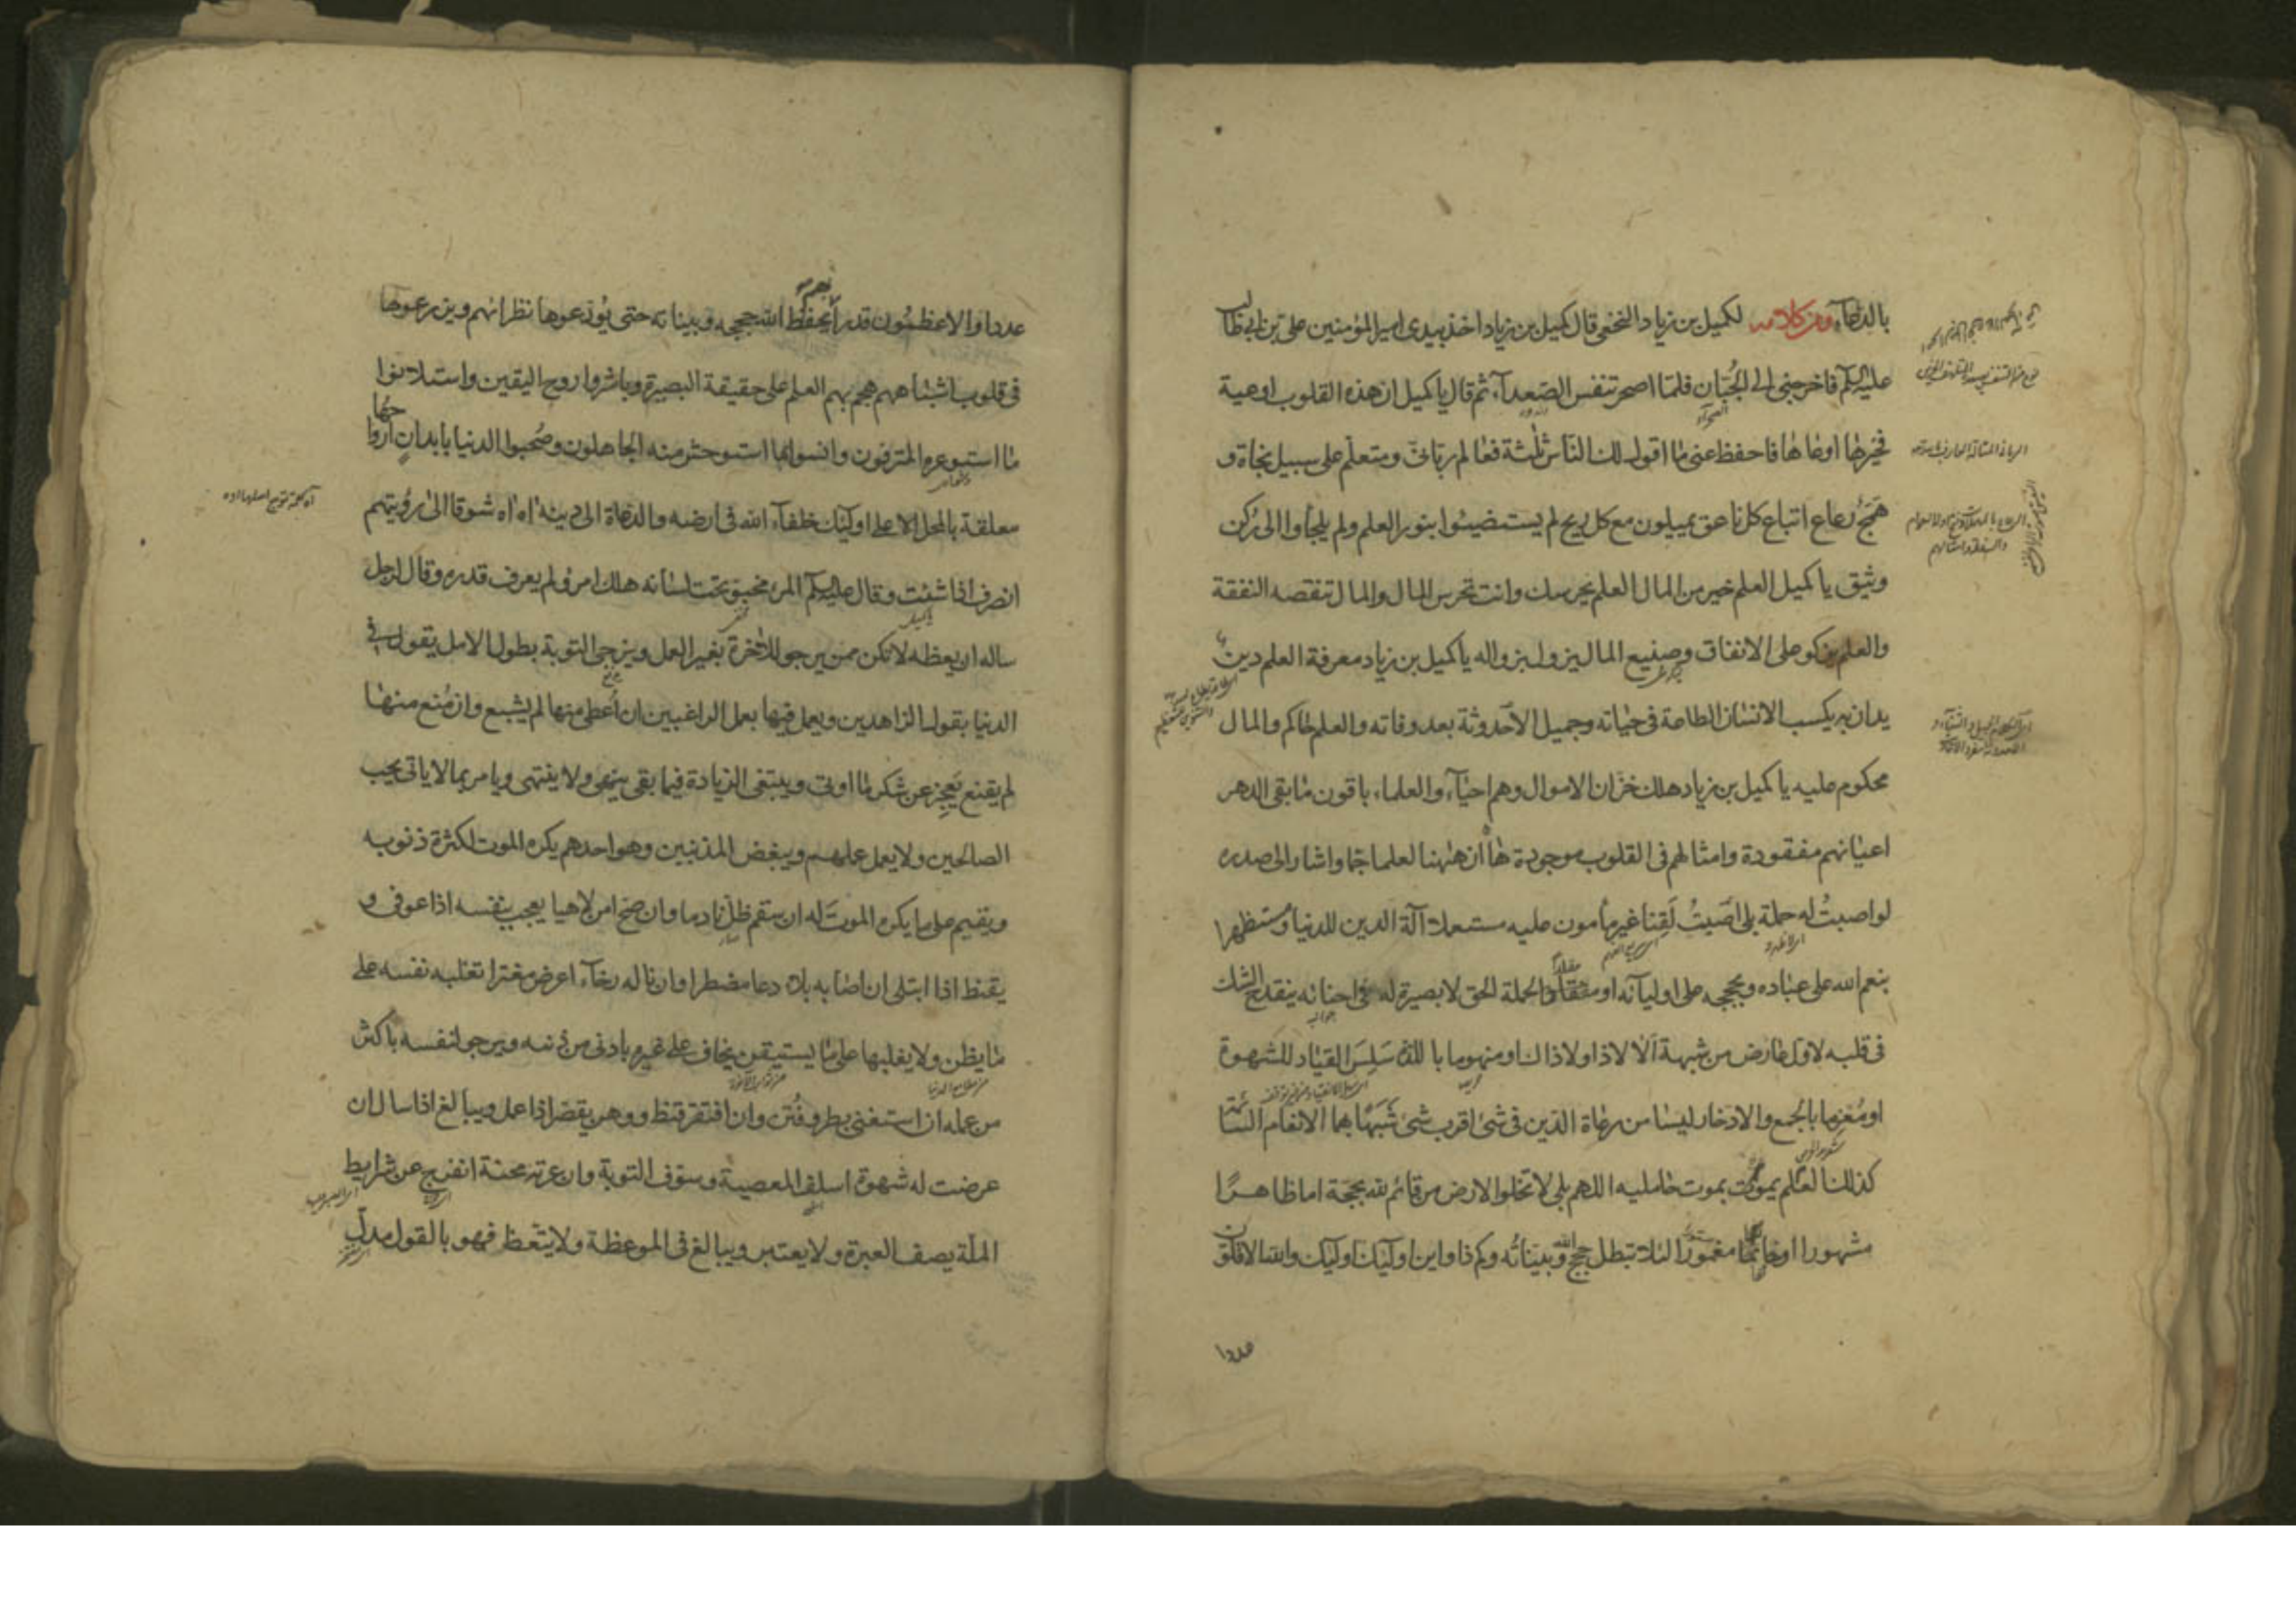 بالدعاء ومن كلامه لكميل بن زياد النخعى قال كميل بن زياد اخذ بيدى امير المؤمنين على بن ابى طالب
عليه السلم فاخرجنى الى الجبان فلما اصحر تنفس الصعداء ثم قال يا كميل ان هذه القلوب اوعية
فخيرها اوعاها فاحفظ عنى ما اقول لك الناس ثلثة فعالم ربانى ومتعلم على سبيل نجاة و
همج رعاع اتباع كل ناعق يميلون مع كل ريح لم يستضيئوا بنور العلم ولم يلجأوا الى ركن
وثيق يا كميل العلم خير من المال العلم يحرسك وانت تحرس المال والمال تنقصه النفقة
والعلم يزكو على الانفاق وصنيع المال يزول بزواله يا كميل بن زياد معرفة العلم دين
يدان به يكسب الانسان الطاعة فى حياته وجميل الاحدوثة بعد وفاته والعلم حاكم والمال
محكوم عليه يا كميل بن زياد هلك خزان الاموال وهم احياء والعلماء باقون ما بقى الدهر
اعيانهم مفقودة وامثالهم فى القلوب موجودة ها ان ههنا لعلما جما واشار الى صدره
لو اصبت له حملة بلى اصبت لقنا غير مأمون عليه مستعملا آلة الدين للدنيا ومستظهرا
بنعم الله على عباده وبحججه على اوليائه او منقادا لحملة الحق لا بصيرة له فى احنائه ينقدح الشك
فى قلبه لاول عارض من شبهة الا لا ذا ولا ذاك او منهوما باللذة سلس القياد للشهوة
او مغرما بالجمع والادخار ليسا من رعاة الدين فى شىء اقرب شىء شبها بهما الانعام السائمة
كذلك العلم يموت بموت حامليه اللهم بلى لا تخلوا الارض من قائم لله بحجة اما ظاهرا
مشهورا او خائفا مغمورا لئلا تبطل حجج الله وبيناته وكم ذا واين اولئك اولئك والله الاقلون
عددا
عددا والاعظمون قدرا بهم يحفظ الله حججه وبيناته حتى يودعوها نظرائهم ويزرعوها
فى قلوب اشباههم هجم بهم العلم على حقيقة البصيرة وباشروا روح اليقين واستلانوا
ما استوعره المترفون وانسوا بما استوحش منه الجاهلون وصحبوا الدنيا بابدان ارواحها
معلقة بالمحل الاعلى اولئك خلفاء الله فى ارضه والدعاة الى دينه اه اه شوقا الى رؤيتهم
انصرف اذا شئت وقال عليه السلم المرء مخبو تحت لسانه هلك امرؤ لم يعرف قدره وقال لرجل
ساله ان يعظه لا تكن ممن يرجو الاخرة بغير العمل ويرجى التوبة بطول الامل يقول فى
الدنيا بقول الزاهدين ويعمل فيها بعمل الراغبين ان اعطى منها لم يشبع وان منع منها
لم يقنع يعجز عن شكر ما اوتى ويبتغى الزيادة فيما بقى ينهى ولا ينتهى ويامر بما لا ياتى يحب
الصالحين ولا يعمل عملهم ويبغض المذنبين وهو احدهم يكره الموت لكثرة ذنوبه
ويقيم على ما يكره الموت له ان سقم ظل نادما وان صح امن لاهيا يعجب بنفسه اذا عوفى و
يقنط اذا ابتلى ان اصابه بلاء دعا مضطرا وان ناله رخاء اعرض مغترا تغلبه نفسه على
ما يظن ولا يغلبها على ما يستيقن يخاف على غيره بادنى من ذنبه ويرجو لنفسه باكثر
من عمله ان استغنى بطر وفتن وان افتقر قنط ووهن يقصر اذا عمل ويبالغ اذا سال ان
عرضت له شهوة اسلف المعصية وسوف التوبة وان عرته محنة انفرج عن شرايط
الملة يصف العبرة ولا يعتبر ويبالغ فى الموعظة ولا يتعظ فهو بالقول مدل